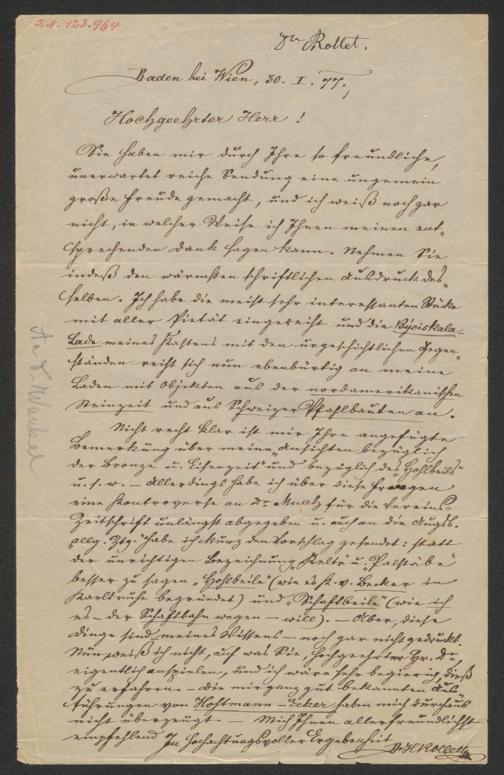 J.N. 123.964
Dr Rollet.
Baden bei Wien, 30. I. 77.,
Hochgeehrter Herr !
Sie haben mir durch Ihre so freundliche,
unerwartet reiche Sendung eine ungemein
große Freude gemacht, und ich weiß noch gar
nicht, in welcher Weise ich Ihnen meinen ent-
sprechenden Dank sagen kann. Nehmen Sie
indeß den wärmsten schriftlichen Ausdruck des-
selben. Ich habe die meist sehr interessanten Stücke
mit aller Pietät eingereiht und die Býciskala-
Lade meines Kastens mit den urgeschichtlichen Gegen-
ständen reiht sich nun ebenbürtig an meine
Laden mit Objekten aus der nordamerikanischen
Steinzeit und aus Schweizer Pfahlbauten an.
Nicht recht klar ist mir Ihre angefügte
Bemerkung über meine „Ansichten bezüglich
der Bronze u. Eisenzeit" und bezüglich des „Hohlbeils"
u. s. w. – Allerdings habe ich über diese Fragen
eine Kontroverse an Dr. Much für die Vereins-
Zeitschrift unlängst abgegeben u. auch an die Augsb.
„Allg. Ztg." habe ich kurz den Vorschlag gesendet: statt
der unrichtigen Bezeichnung „Kelt" u. „Palstäbe"
besser zu sagen „Hohlbeile" (wie es H. v. Becker in
Karlsruhe begründet) und „Schaftbeile" (wie ich
es – der Schaftbahn wegen – will). – Aber, diese
Dinge sind – meines Wissens – noch gar nicht gedruckt.
Nun weiß ich nicht, auf was Sie, hochgeehrter Hr. Dr,
eigentlich anspielen, und ich wäre sehr begierig, dieß
zu erfahren. – Die mir ganz gut bekannten Aus-
führungen von Hostmann-Ecker haben mich durchaus
nicht überzeugt. – Mich Ihnen allerfreundlichst
empfehlend In hochachtungsvoller Ergebenheit
Dr H Rollett
An Dr Wankel